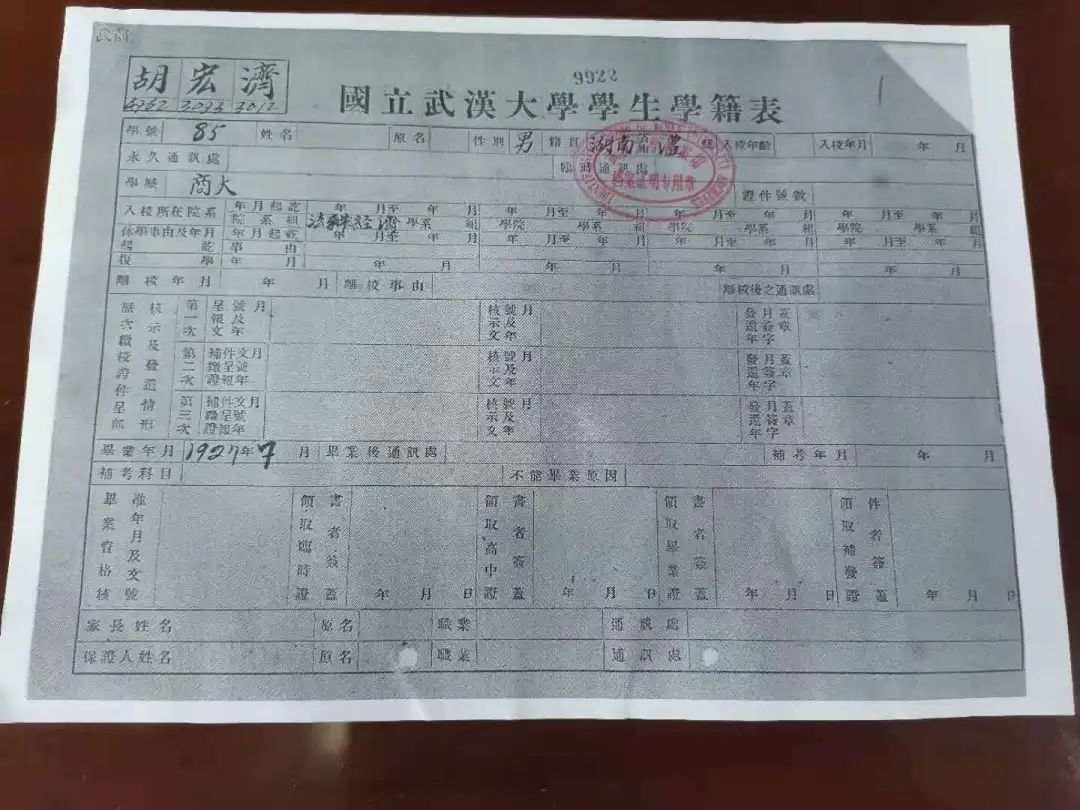 9922
胡宏濟
4762 3073 3012
國立武漢大學學生學籍表
學號 85 姓名 原名 性別 男 籍貫 湖南 入校年齡 入校年月 年 月
永久通訊處 臨時通訊處
學歷 商大 證件號數
入校所在院系 年月起訖 年 月至 年 月 年 月至 年 月 年 月至 年 月 年 月至 年 月
院系組 經濟學系 組 學院 學系 組 學院 學系 組 學院 學系 組
休學事由及年月 年月起訖 年 月至 年 月 年 月至 年 月 年 月至 年 月 年 月至 年 月
起訖事由
復學 年 月 年 月 年 月 年 月 年 月
離校年月 年 月 離校事由 離校後之通訊處
歷次職校證件呈部核示及發還情形
第一次 呈報文號及年月 核示文號及年月 發還年月簽字蓋章
第二次 補件文月 核示文號及年月 發還年月簽字蓋章
第三次 補件文月 核示文號及年月 發還年月簽字蓋章
畢業年月 1927年7月 畢業後通訊處 補考年月 年 月
補考科目 不能畢業原因
畢業資格核准年月及文號 領取臨時證書者簽蓋 年 月 日 領取高中證書者簽蓋 年 月 日 領取畢業證書名簽蓋 年 月 日 領取補發證件者簽蓋 年 月 日
家長姓名 原名 職業 通訊處
保證人姓名 原名 職業 通訊處